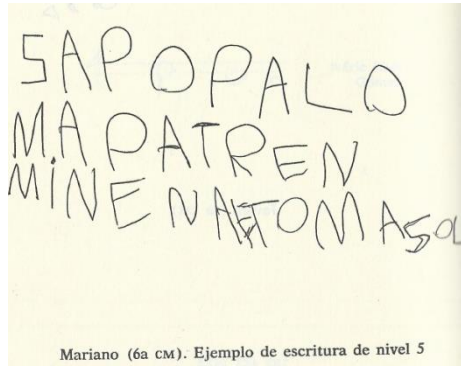 SAPOPALO
MAPATREN
MiNENAETOMASOL
Mariano (6a CM). Ejemplo de escritura de nivel 5